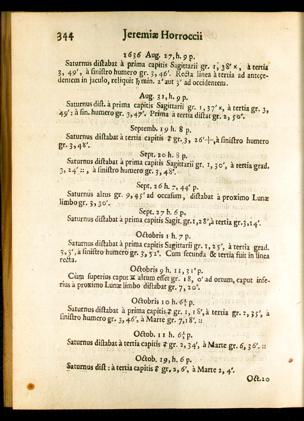 344 Jeremiæ Horroccii
1636 Aug. 27, h. 9 p.
Saturnus distabat à prima capitis Sagittarii gr. 1, 38' ×, à tertia
3, 49', à sinistro humero gr. 3, 46'. Recta linea à tertia ad antece-
dentem in jaculo, reliquit ♄ min. 2' aut 3' ad occidentem.
Aug. 31, h. 9 p.
Saturnus dist. à prima capitis Sagittarii gr. 1, 37' ×, à tertia gr. 3,
49': à sin. humero gr. 3, 47'. Prima à tertia distat gr. 2, 50'.
Septemb. 19 h. 8 p.
Saturnus distabat à tertia capitis ♐ gr. 3, 26' +, à sinistro humero
gr. 3, 48'.
Sept. 20 h. 8 p.
Saturnus distabat à prima capitis Sagittarii gr. 1, 30', à tertia grad.
3, 24' ::, à sinistro humero gr. 3, 48'.
Sept. 26 h. 7, 44' p.
Saturnus altus gr. 9, 45' ad occasum, distabat à proximo Lunæ
limbo gr. 3, 30'.
Sept. 27 h. 6 p.
Saturnus distabat à prima capitis Sagit. gr. 1, 28', à tertia gr. 3, 14'.
Octobris 1 h. 7 p.
Saturnus distabat à prima capitis Sagittarii gr. 1, 25', à tertia grad.
3, 3', à sinistro humero gr. 3, 52'. Cum secunda & tertia fuit in linea
recta.
Octobris 9 h. 11, 31' p.
Cum superius caput ♉ altum esset gr. 18, 0' ad ortum, caput infe-
rius à proximo Lunæ limbo distabat gr. 7, 20'.
Octobris 10 h. 6¾ p.
Saturnus distabat à prima capitis ♐ gr. 1, 18', à tertia gr. 2, 35', à
sinistro humero gr. 3, 46', à Marte gr. 7, 18'. ::
Octob. 11 h. 6¾ p.
Saturnus distabat à tertia capitis ♐ gr. 2, 34', à Marte gr. 6, 36'. ::
Octob. 19, h. 6 p.
Saturnus dist: à tertia capitis ♐ gr. 2, 6', à Marte 2, 4'.
Oct. 20